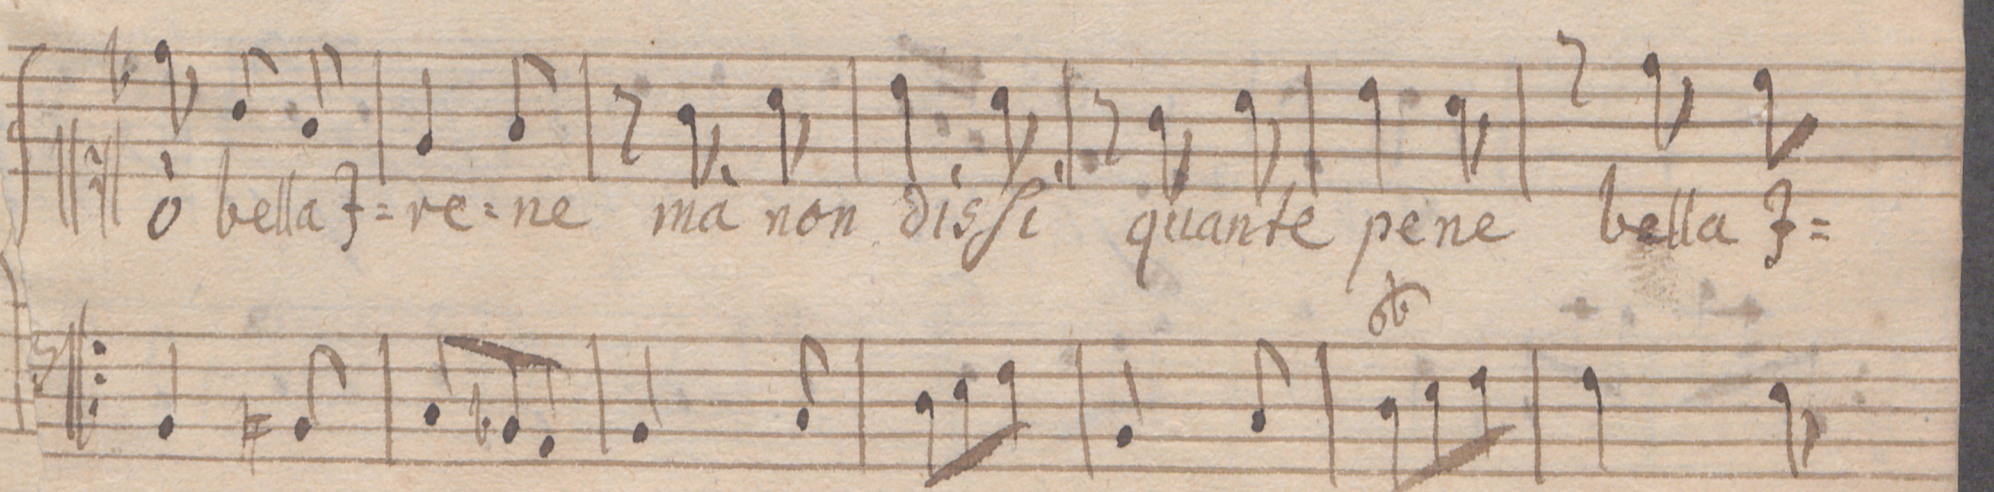 ò bella J=re=ne mà non dissi quante pene bella J=
6b